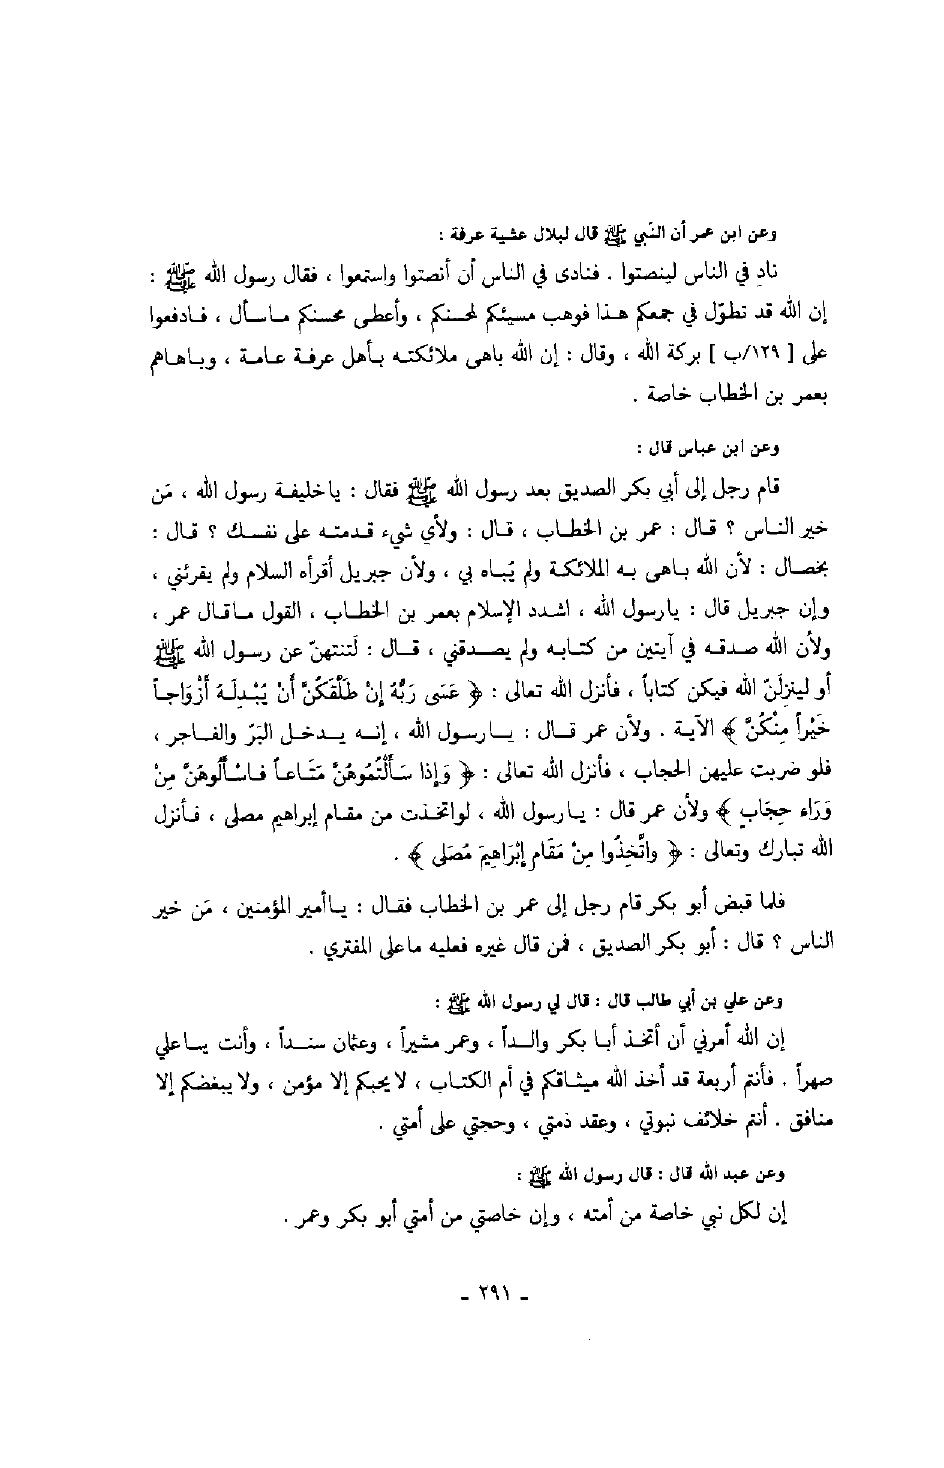 وعن ابن عمر أن النَّبي ﷺ قال لبلال عشية عرفة :
نادِ في الناس لينصتوا . فنادى في الناس أن أنصتوا واستمعوا ، فقال رسول الله ﷺ :
إن الله قد تطوّل في جمعكم هذا فوهب مسيئكم لمحسنكم ، وأعطى محسنكم ماسأل ، فادفعوا
على [ ١٢٩/ب ] بركة الله ، وقال : إن الله باهى ملائكته بأهل عرفة عامة ، وباهاهم
بعمر بن الخطاب خاصة .
وعن ابن عباس قال :
قام رجل إلى أبي بكر الصديق بعد رسول الله ﷺ فقال : ياخليفة رسول الله ، مَن
خير الناس ؟ قال : عمر بن الخطاب ، قال : ولأي شيء قدمته على نفسك ؟ قال :
بخصال : لأن الله باهى به الملائكة ولم يُباه بي ، ولأن جبريل أقرأه السلام ولم يقرئني ،
وإن جبريل قال : يارسول الله ، اشدد الإسلام بعمر بن الخطاب ، القول ماقال عمر ،
ولأن الله صدقه في آيتين من كتابه ولم يصدقني ، قال : لَتنتهنّ عن رسول الله ﷺ
أو لينزلَنّ الله فيكن كتاباً ، فأنزل الله تعالى : ﴿ عَسَى رَبُّهُ إنْ طَلَّقَكُنَّ أنْ يُبْدِلَهُ أزْوَاجاً
خَيْراً مِنْكُنَّ ﴾ الآية . ولأن عمر قال : يارسول الله ، إنه يدخل البَرّ والفاجر ،
فلو ضربت عليهن الحجاب ، فأنزل الله تعالى : ﴿ وَإذا سَألْتُمُوهُنَّ مَتَاعاً فاسْألُوهُنَّ مِنْ
وَرَاءِ حِجَابٍ ﴾ ولأن عمر قال : يارسول الله ، لواتخذت من مقام إبراهيم مصلى ، فأنزل
الله تبارك وتعالى : ﴿ واتَّخِذُوا مِنْ مَقَامِ إبْرَاهِيمَ مُصَلى ﴾ .
فلما قبض أبو بكر قام رجل إلى عمر بن الخطاب فقال : ياأمير المؤمنين ، مَن خير
الناس ؟ قال : أبو بكر الصديق ، فمن قال غيره فعليه ماعلى المفتري .
وعن علي بن أبي طالب قال : قال لي رسول الله ﷺ :
إن الله أمرني أن أتخذ أبا بكر والداً ، وعمر مشيراً ، وعثمان سنداً ، وأنت ياعلي
صهراً . فأنتم أربعة قد أخذ الله ميثاقكم في أم الكتاب ، لايحبكم إلا مؤمن ، ولا يبغضكم إلا
منافق . أنتم خلائف نبوتي ، وعقد ذمتي ، وحجتي على أمتي .
وعن عبد الله قال : قال رسول الله ﷺ :
إن لكل نبي خاصة من أمته ، وإن خاصتي من أمتي أبو بكر وعمر .
- ٢٩١ -